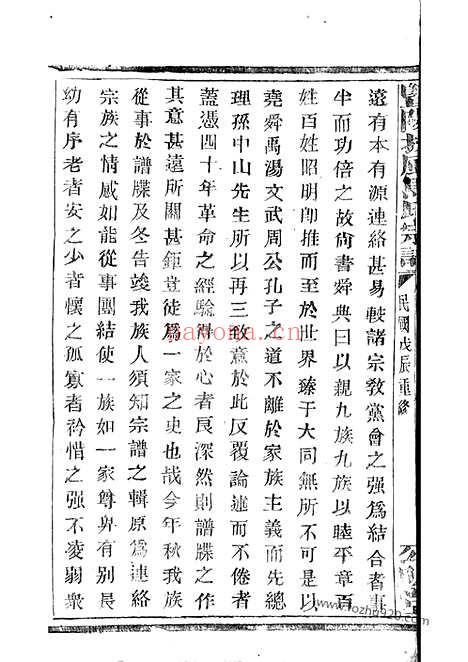 遠有本有源連絡甚易較諸宗教黨會之强爲結合者事
半而功倍之故尙書舜典曰以親九族九族以睦平章百
姓百姓昭明卽推而至於世界臻于大同無所不可是以
堯舜禹湯文武周公孔子之道不離於家族主義而先總
理孫中山先生所以再三致意於此反覆論述而不倦者
蓋憑四十年革命之經驗得於心者良深然則譜牒之作
其意甚遠所關甚鉅豈徒爲一家之史也哉今年秋我族
從事於譜牒及冬告竣我族人須知宗譜之輯原爲連絡
宗族之情感如能從事團結使一族如一家尊卑有別長
幼有序老者安之少者懷之孤寡者矜惜之强不凌弱衆
氏宗譜
民國戊辰重修
nayona.cn
www.fozhg20.com